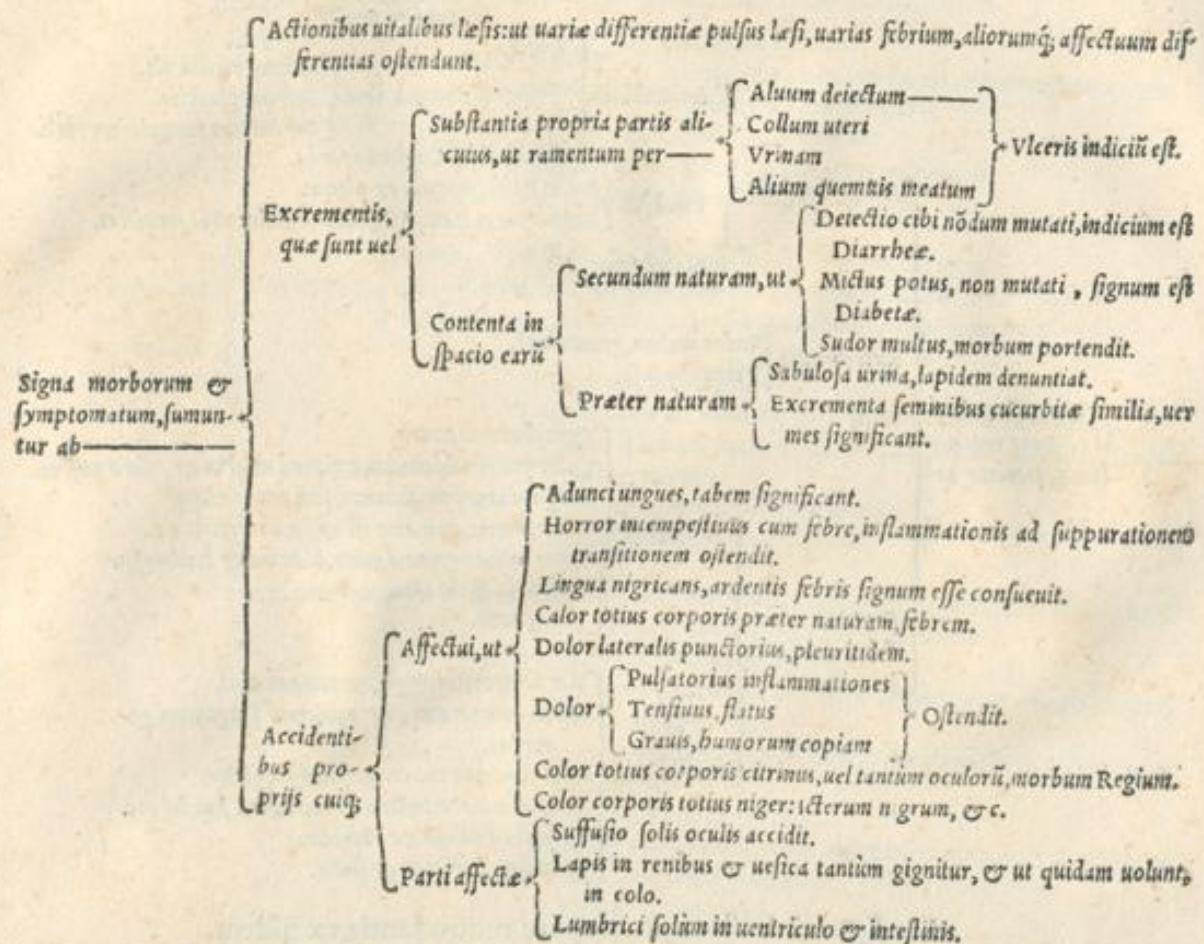 Actionibus uitalibus læsis: ut uariæ differentiæ pulsus læsi, uarias febrium, aliorumq; affectuum dif-
ferentias ostendunt.
Signa morborum &
symptomatum, sumun-
tur ab
Excrementis,
quæ sunt uel
Substantia propria partis ali-
cuius, ut ramentum per
Aluum deiectum
Collum uteri
Vrinam
Alium quemuis meatum
Vlceris indiciũ est.
Contenta in
spacio earũ
Secundum naturam, ut
Deiectio cibi nõdum mutati, indicium est
Diarrheæ.
Mictus potus, non mutati, signum est
Diabetæ.
Sudor multus, morbum portendit.
Præter naturam
Sabulosa urina, lapidem denuntiat.
Excrementa seminibus cucurbitæ similia, uer
mes significant.
Accidenti-
bus pro-
prijs cuiq;
Affectui, ut
Adunci ungues, tabem significant.
Horror intempestiuus cum febre, inflammationis ad suppurationem
transitionem ostendit.
Lingua nigricans, ardentis febris signum esse consueuit.
Calor totius corporis præter naturam, febrem.
Dolor lateralis punctorius, pleuritidem.
Dolor
Pulsatorius inflammationes
Tensiuus, flatus
Grauis, humorum copiam
Ostendit.
Color totius corporis citrinus, uel tantùm oculorũ, morbum Regium.
Color corporis totius niger: icterum n grum, & c.
Parti affectæ
Suffusio solis oculis accidit.
Lapis in renibus & uesica tantùm gignitur, & ut quidam uolunt,
in colo.
Lumbrici solùm in uentriculo & intestinis.